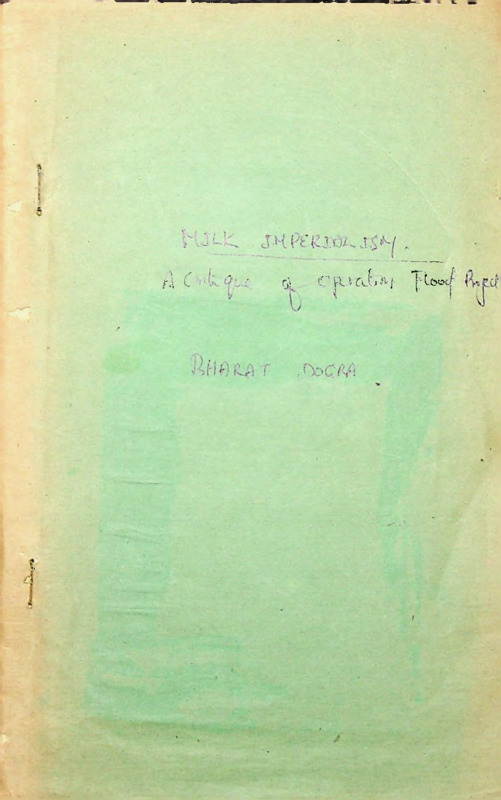 MILK IMPERIALISM.
A Critique of Operation Flood Project
BHARAT DOGRA.